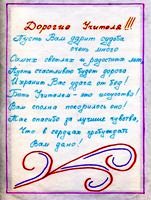 Дорогие Учителя!!!
Пусть Вам дарит судьба
очень много
Самых светлых и радостных лет,
Пусть счастливою будет дорога
И хранит Вас удача от бед!
Быть Учителем - это искусство!
Вам сполна покорилось оно!
Так спасибо за лучшие чувства,
Что в сердцах пробуждать
Вам дано!